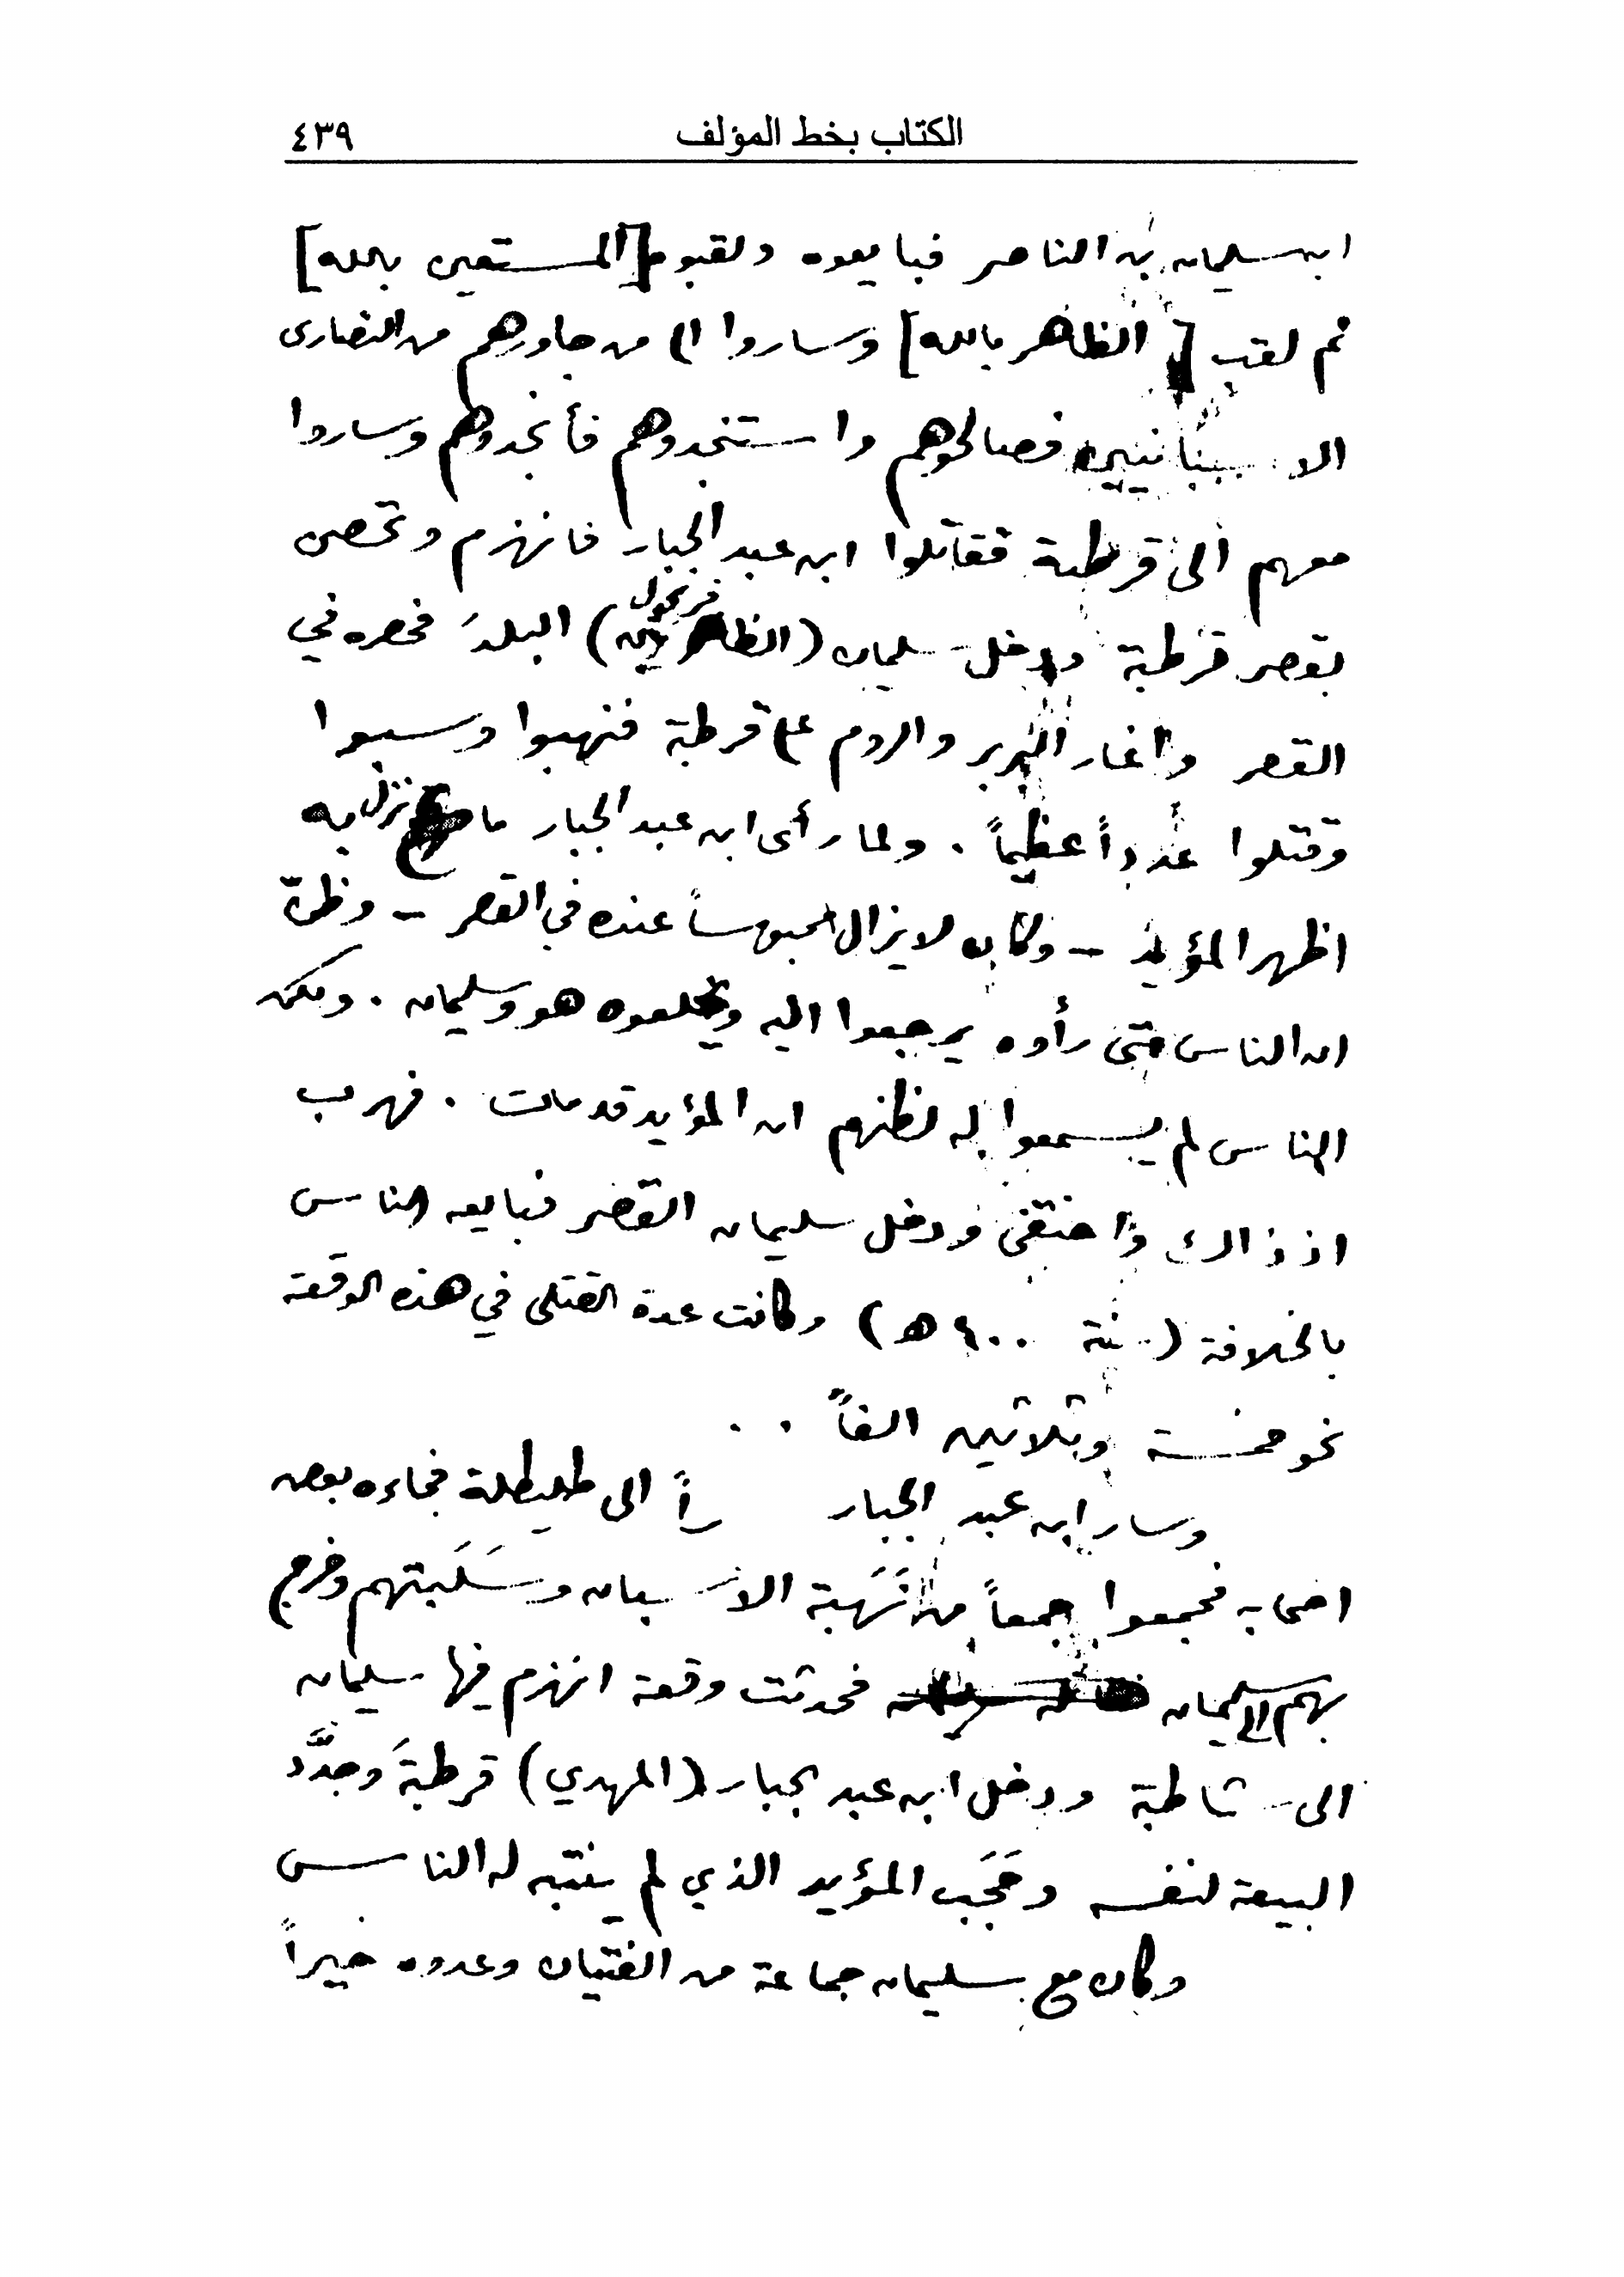 الكتاب بخط المؤلف ٤٣٩
ابن سليمان بن الناصر فبايعوه ولقبوه [المستعين بالله]
ثم لقب [الظاهر بالله] وساروا الى من جاورهم من النصارى
الاسبنانيين فصالحوهم واستنجدوهم فأنجدوهم وساروا
معهم الى قرطبة فقاتلوا ابن عبد الجبار فانهزم وتحصن
بقصر قرطبة ودخل سليمان (الظافر بحول) البلدَ فحصره في
القصر واغار البربر والروم على قرطبة فنهبوا وسبوا
وقتلوا عدداً عظيماً . ولما رأى ابن عبد الجبار ما نزل به
اظهر المؤيد - وكان لا يزال محبوساً عنده في القصر - وظنّ
ان الناس متى رأوه يرجعوا اليه ويخلعوه هو وسليمان . ولكن
الناس لم يسمعوا له لظنهم ان المؤيد قد مات . فهرب
اذ ذاك واختفى ودخل سليمان القصر فبايعه الناس
بالخلافة (سنة ٤٠٠ هـ) وكانت عدة القتلى في هذه الوقعة
نحو خمسة وثلاثين الفاً . .
وسار ابن عبد الجبار راً الى طليطلة فجاءه بعض
اصحابه فجمعوا جمعاً من نَهَبة الاسبان وسَلَبتهم وخرج
بهم الى سليمان فحدثت وقعة انهزم فيها سليمان
الى شاطبة ودخل ابن عبد الجبار (المهدي) قرطبةَ وجدَّد
البيعة لنفسه وحَجَب المؤيد الذي لم ينتبه له الناس
وكان مع سليمان جماعة من الفتيان وعدوه خيراً